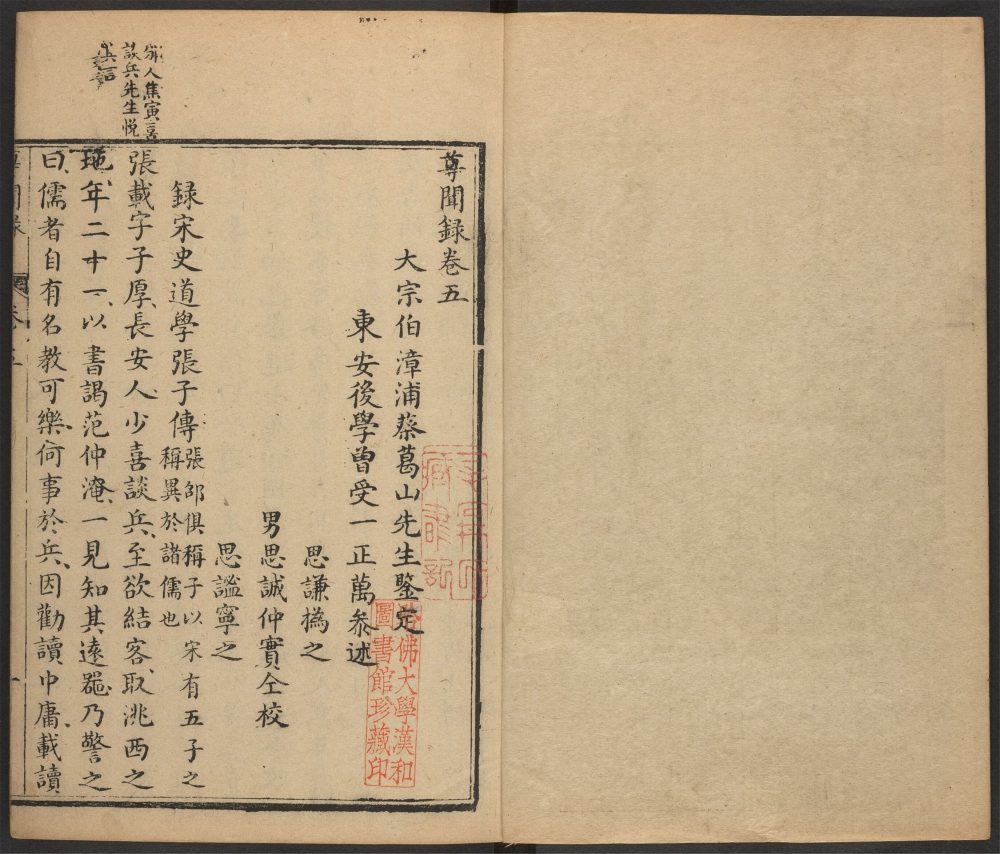 尊聞録卷五
大宗伯漳浦蔡葛山先生鑒定
東安後學曾受一正萬叅述
思謙撝之
男思誠仲實仝校
思謐寧之
録宋史道學張子傳張邵俱稱子以宋有五子之
稱異於諸儒也
張載字子厚長安人少喜談兵至欲結客取洮西之
地年二十一以書謁范仲淹一見知其遠器乃警之
曰儒者自有名教可樂何事於兵因勸讀中庸載讀
邠人焦寅喜
談兵先生悅
其言
哈佛大學漢和
圖書館珍藏印